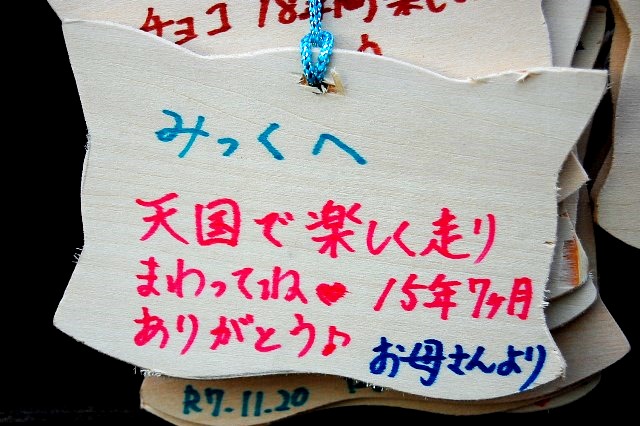 チョコ 18年間楽し
みっくへ
天国で楽しく走り
まわってね♥ 15年7ヶ月
ありがとう♪ お母さんより
R7.11.20